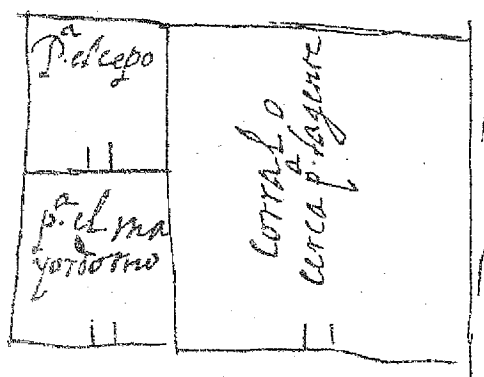 P.ª el cepo
p.ª el ma
yordomo
corral o
cerca p.ª la gente